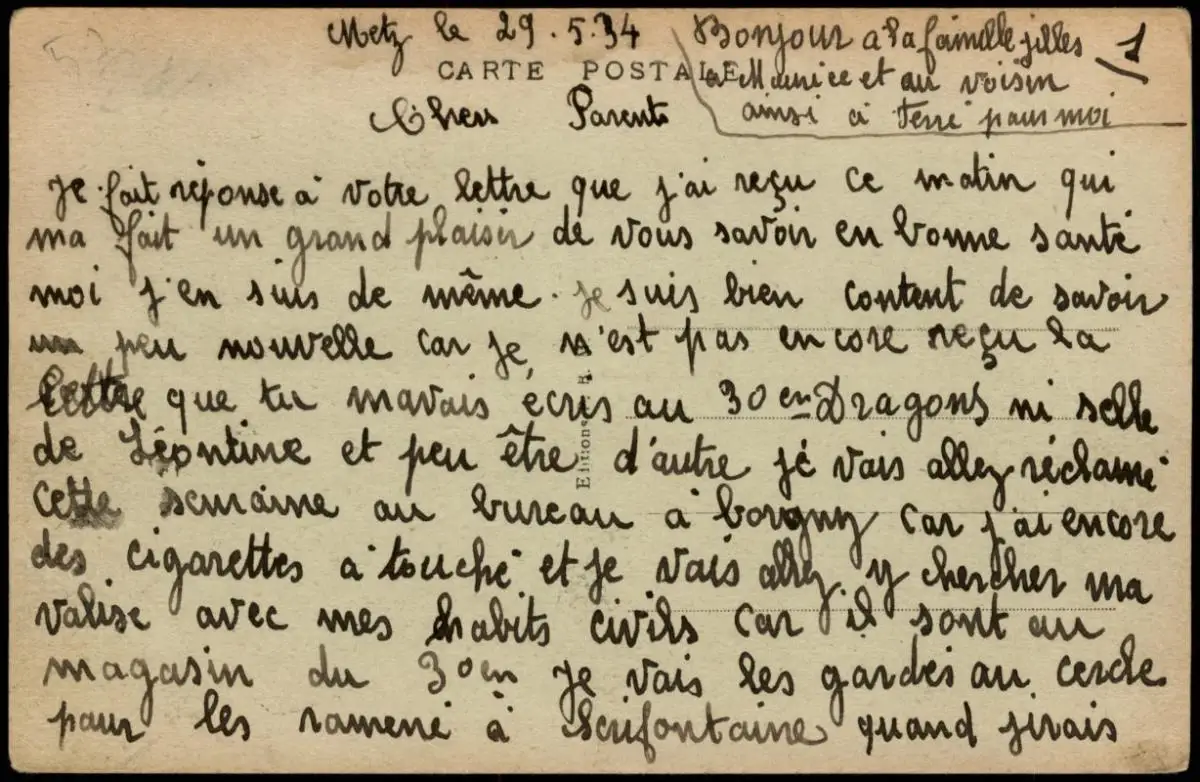 Metz le 29.5.34
Bonjour a la famille jilles
a Maurice et au voisin
ainsi a Ferré pour moi
1
CARTE POSTALE
Chers Parents
Je fait réponse a votre lettre que j'ai reçu ce matin qui
ma fait un grand plaisir de vous savoir en bonne santé
moi j'en suis de même. je suis bien content de savoir
un peu nouvelle car je n'est pas encore reçu la
lettre que tu mavais écris au 30en Dragons ni selle
de Léontine et peu être d'autre je vais allez réclamé
cette semaine au bureau à borgny car j'ai encore
des cigarettes a touché et je vais allez y chercher ma
valise avec mes habits civils car il sont au
magasin du 30en je vais les gardes au cercle
pour les ramené à Sérifontaine quand jirais
Editions